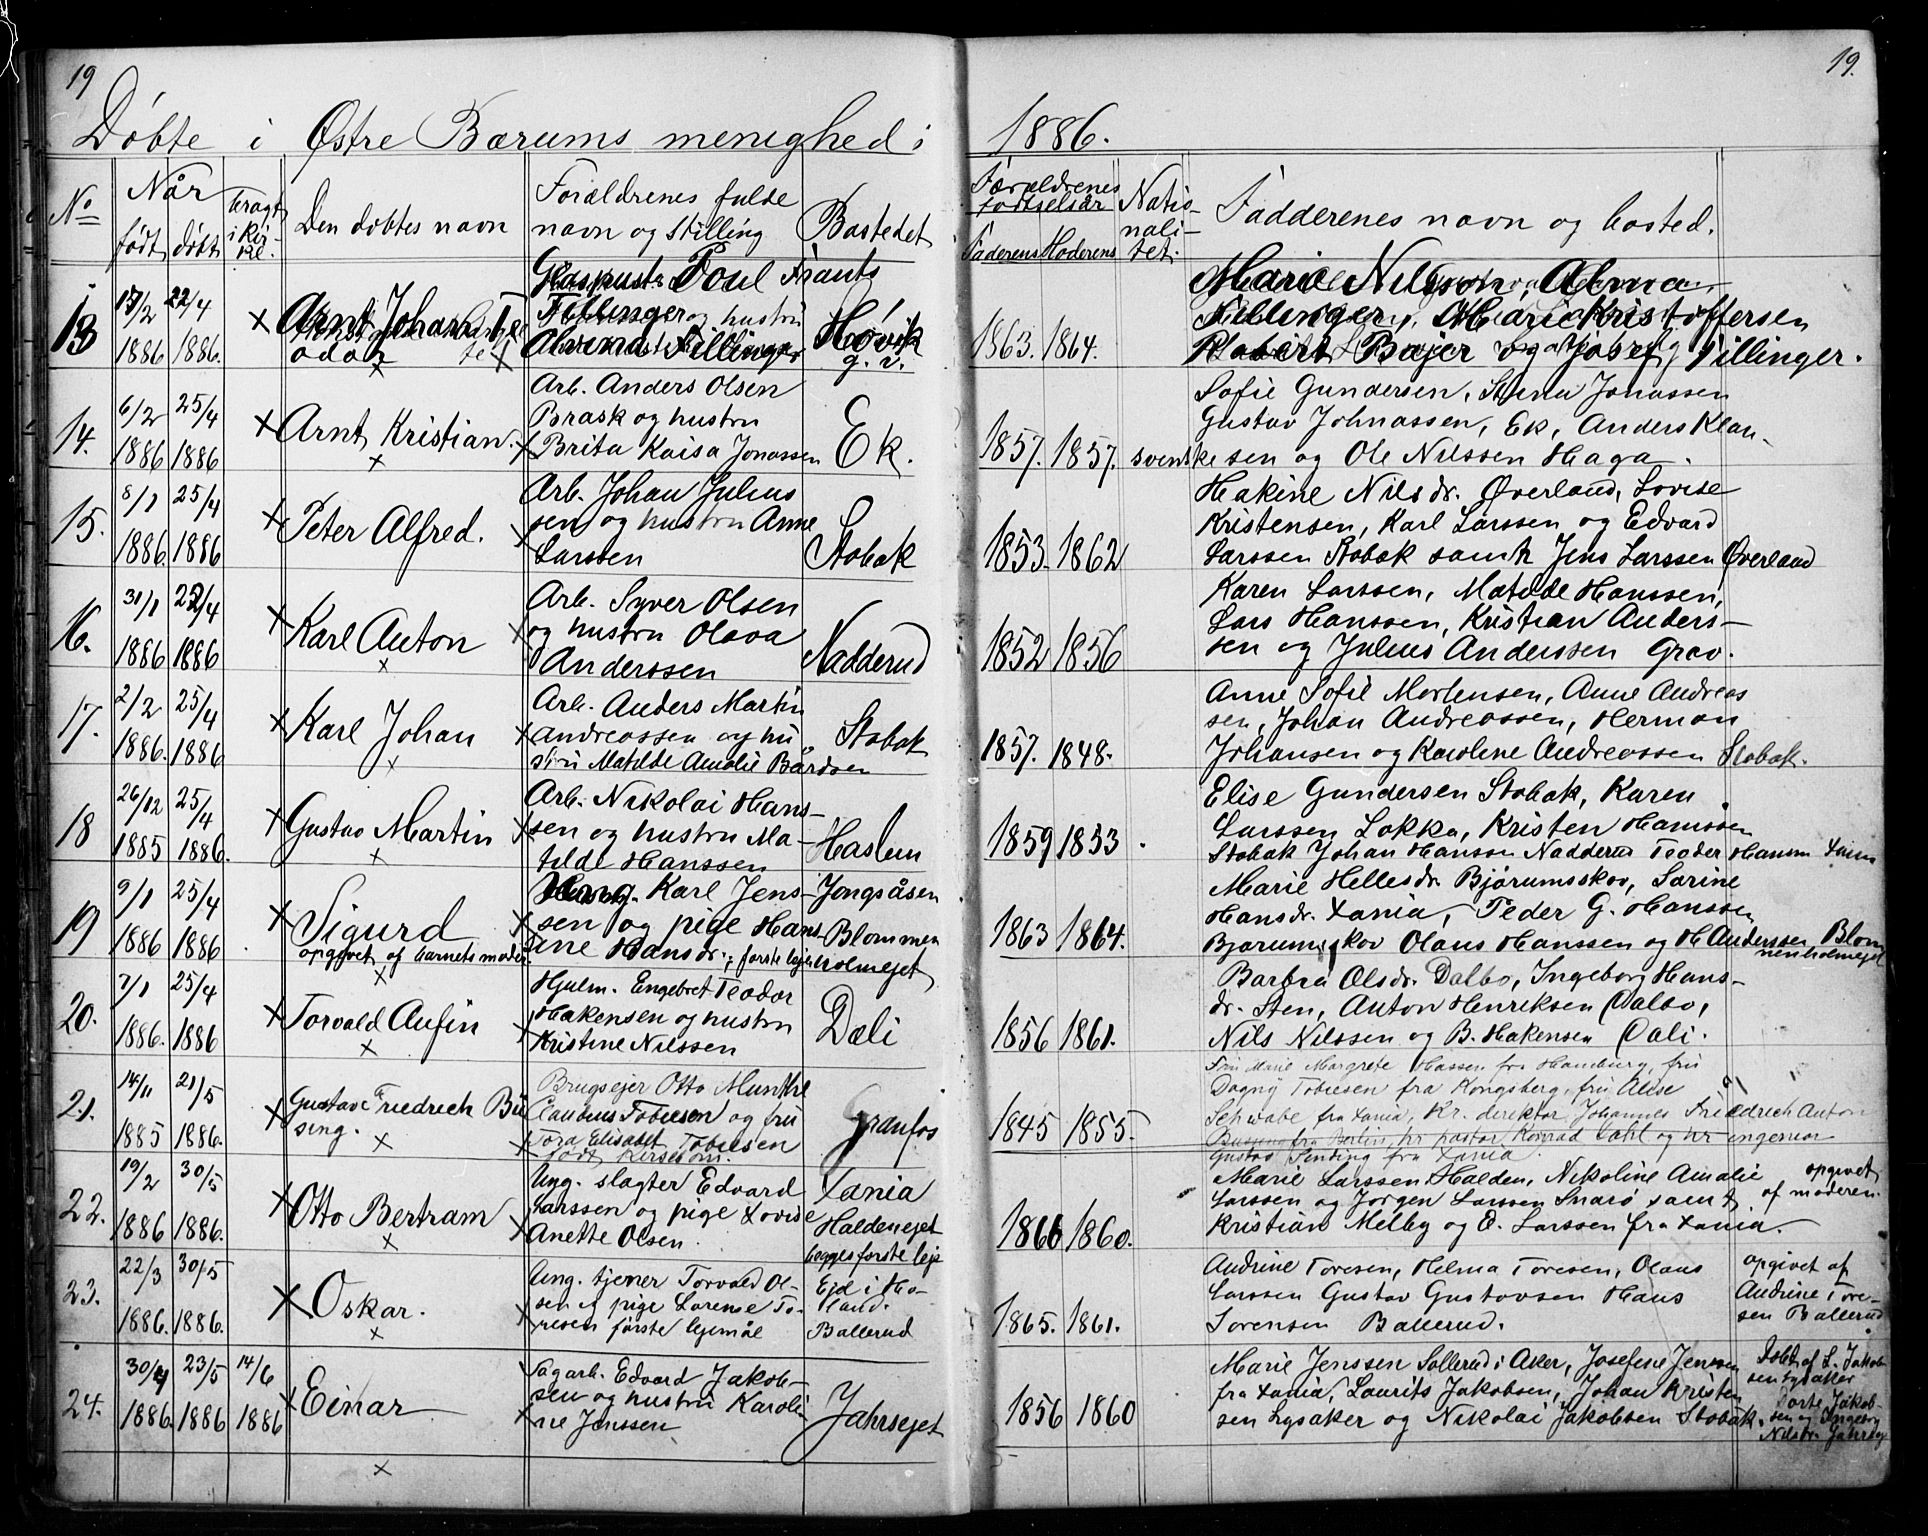 19
19.
Døbte i Østre Bærums menighed i 1886.
No
Når
født døbt
Fragt i kirke.
Den døbtes navn
Forældrenes fulde navn og stilling
Bostedet
Forældrenes fødselsår
Faderens Moderens
Nationalitet.
Faddernes navn og bosted.
13
22/4
1886 1886.
Arnt Johan
odor
Poul Frantz
Fillinger og hustru
Fillinger
Høvik
g. v.
1863. 1864.
Marie Nilsson, Alma
Fillinger, Marie Kristoffersen
Robert Bajer og Josef Fillinger.
14.
6/2 25/4
1886 1886
Arnt Kristian.
Arb. Anders Olsen
Brask og hustru
Brita Kaisa Jonassen
Ek.
1857. 1857. svenske
Sofie Gundersen, Jonassen
Gustav Johnassen, Ek, Anders Klau-
sen og Ole Nilssen Haga.
15.
8/1 25/4
1886. 1886
Peter Alfred.
Arb. Johan Julius
sen og hustru Anne
Larssen
Stobak
1853. 1862
Hakine Nilsdr. Øverland, Lovise
Kristensen, Karl Larssen og Edvard
Larssen Stobak samt Jens Larssen Øverland
16.
31/1 25/4
1886 1886
Karl Anton
Arb. Syver Olsen
og hustru Olava
Anderssen
Nadderud
1852 1856
Karen Larssen, Matilde Hanssen,
Lars Hanssen, Kristian Anders-
sen og Julius Anderssen Grav.
17.
2/2 25/4
1886. 1886
Karl Johan
Arb. Anders Martin
Andreassen og hu-
stru Matilde Amalie Bårdsen
Stobak
1857. 1848.
Anne Sofie Mortensen, Anne Andreas
sen, Johan Andreassen, Herman
Johansen og Karoline Andreassen Stobak.
18
26/12 25/4
1885 1886.
Gustav Martin
Arb. Nikolai Hans-
sen og hustru Ma-
tilde Hanssen
Haslum
1859 1853
Elise Gundersen Stobak, Karen
Larssen Løkka, Kristen Hanssen
Stobak Johan Hanssen Nadderud Teodor Hanssen Xania
19
9/1 25/4
1886 1886
Sigurd
opgivet af barnets moder.
Ung. Karl Jens-
sen og pige Hans
ine Hansdr.; første leje
Jongsåsen
Blommen
holmejet
1863 1864.
Marie Hellesdr. Bjørumsskov, Sarine
Hansdr. Xania, Peder G. Hanssen
Bjørumsskov Olaus Hanssen og H Anderssen, Blom
menholmejet
20.
7/1 25/4
1886. 1886
Torvald Anfin
Hjulm. Engebret Teodor
Håkensen og hustru
Kristine Nilssen
Dæli
1856 1861.
Barbra Olsdr. Dalbo, Ingeborg Hans-
dr. Sten, Anton Henriksen Dalbo,
Nils Nilssen og B. Hakensen Dæli.
21.
14/11 21/5
1885 1886.
Gustav Friedrich Bü
sing.
Brugsejer Otto Munthe
Claudius Tobiesen og fru
Tora Elisabet Tobiesen
født Kirsebom.
Granfos
1845 1855.
Fru Marie Margrete Hassen fra Hamburg, fru
Dagny Tobiesen fra Kongsberg, fru Alise
Schwabe fra Xania, Hr. direktør Johannes Friedrich Anton
Büsing fra Berlin, hr pastor Konrad Dahl og hr ingeniør
Gustav Sinding fra Xania.
22.
19/2 30/5
1886 1886.
Otto Bertram
Ung. slagter Edvard
Larssen og pige Lovise
Anette Olsen.
Xania
Haldenejet
begges første leje
1866 1860.
Marie Larssen Halden, Nikoline Amalie
Larssen og Jørgen Larssen Snarø samt
Kristian Melby og O. Larssen fra Xania.
opgivet
af moderen.
23.
22/3 30/5
1886. 1886.
Oskar.
Ung. tjener Torvald Ol-
sen og pige Lorense To-
resen første lejemål
Eid i Hø-
land.
Ballerud
1865. 1861.
Andrine Toresen, Helma Toresen, Olaus
Larssen Gustav Gustavsen Hans
Sørensen Ballerud.
opgivet af
Andrine Tore-
sen Ballerud
24.
30/4 23/5 14/6
1886. 1886 1886
Einar
Sagarb. Edvard Jakob-
sen og hustru Karoli
ne Jenssen
Jahrsejet
1856 1860
Marie Jenssen Sollerud i Aker, Josefine Jenssen
fra Xania, Laurits Jakobsen, Johan Kristen
sen Lysaker og Nikolai Jakobsen Stobak.
Døbt af L. Jakob
sen Lysaker
Dorte Jakob-
sen og Ingeborg
Nilsdr.